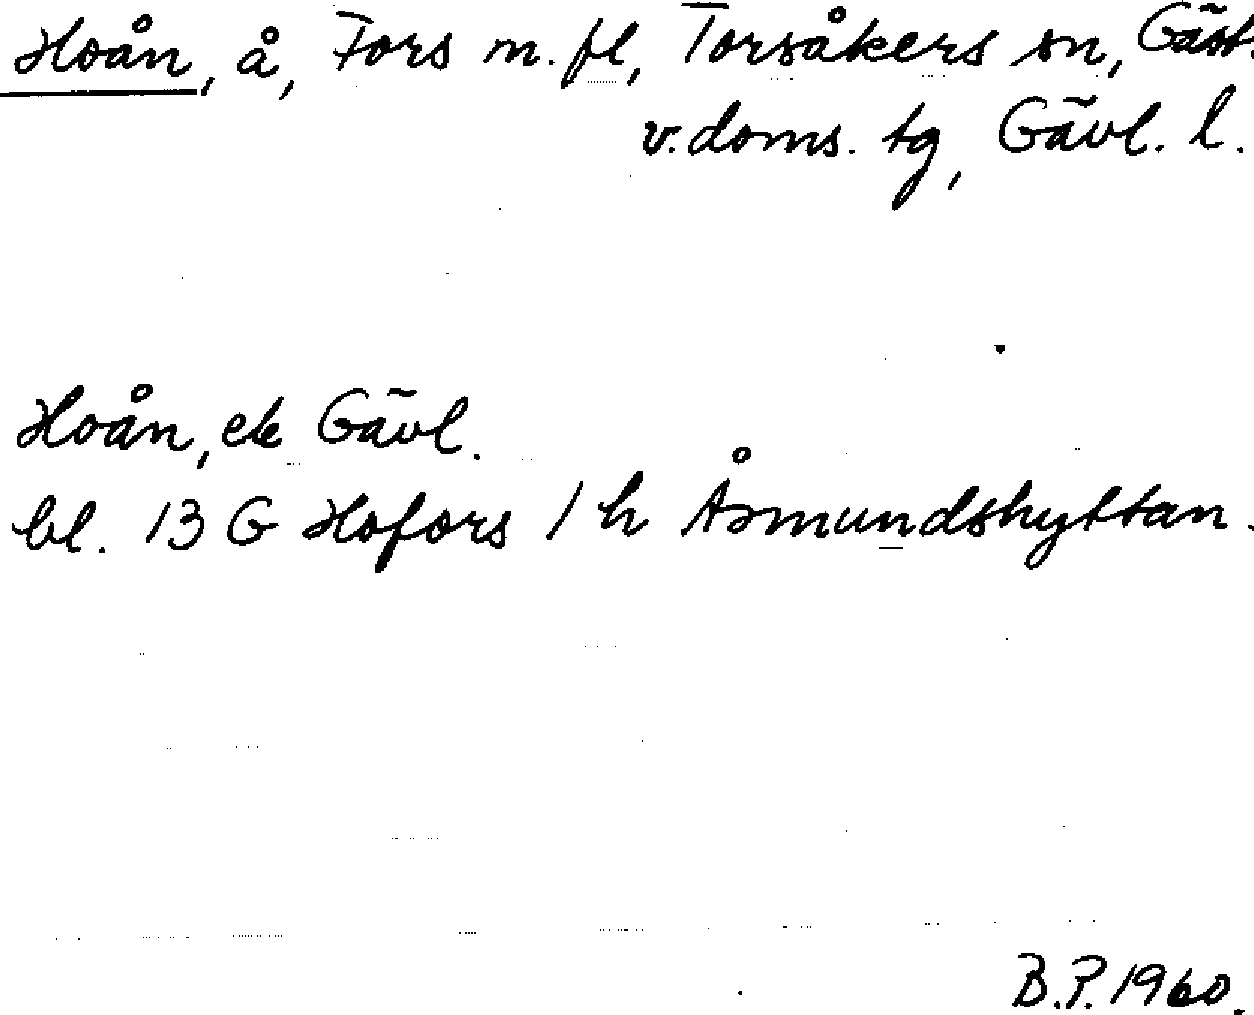 Hoån, å, Fors m. fl, Torsåkers sn, Gäst.
v. doms. tg, Gävl. l.
Hoån, ek Gävl.
bl. 13 G Hofors 1 h Åsmundshyttan.
B.P. 1960.